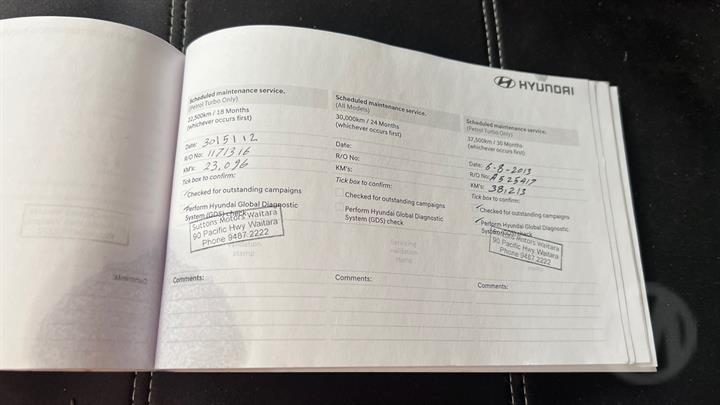 HYUNDAI
Scheduled maintenance service.
(Petrol Turbo Only)
22,500km / 18 Months
(whichever occurs first)
Date: 30/5/12
R/O No: 1171316
KM's: 23,096
Tick box to confirm:
Checked for outstanding campaigns
Perform Hyundai Global Diagnostic
System (GDS) check
Suttons Motors Waitara
90 Pacific Hwy Waitara
Phone 9487 2222
validation
stamp
Comments:
Scheduled maintenance service.
(All Models)
30,000km / 24 Months
(whichever occurs first)
Date:
R/O No:
KM's:
Tick box to confirm:
Checked for outstanding campaigns
Perform Hyundai Global Diagnostic
System (GDS) check
Servicing
validation
stamp
Comments:
Scheduled maintenance service.
(Petrol Turbo Only)
37,500km / 30 Months
(whichever occurs first)
Date: 6-8-2013
R/O No: A525417
KM's: 38,213
Tick box to confirm:
Checked for outstanding campaigns
Perform Hyundai Global Diagnostic
System (GDS) check
Suttons Motors Waitara
90 Pacific Hwy Waitara
Phone 9487 2222
stamp
Comments: